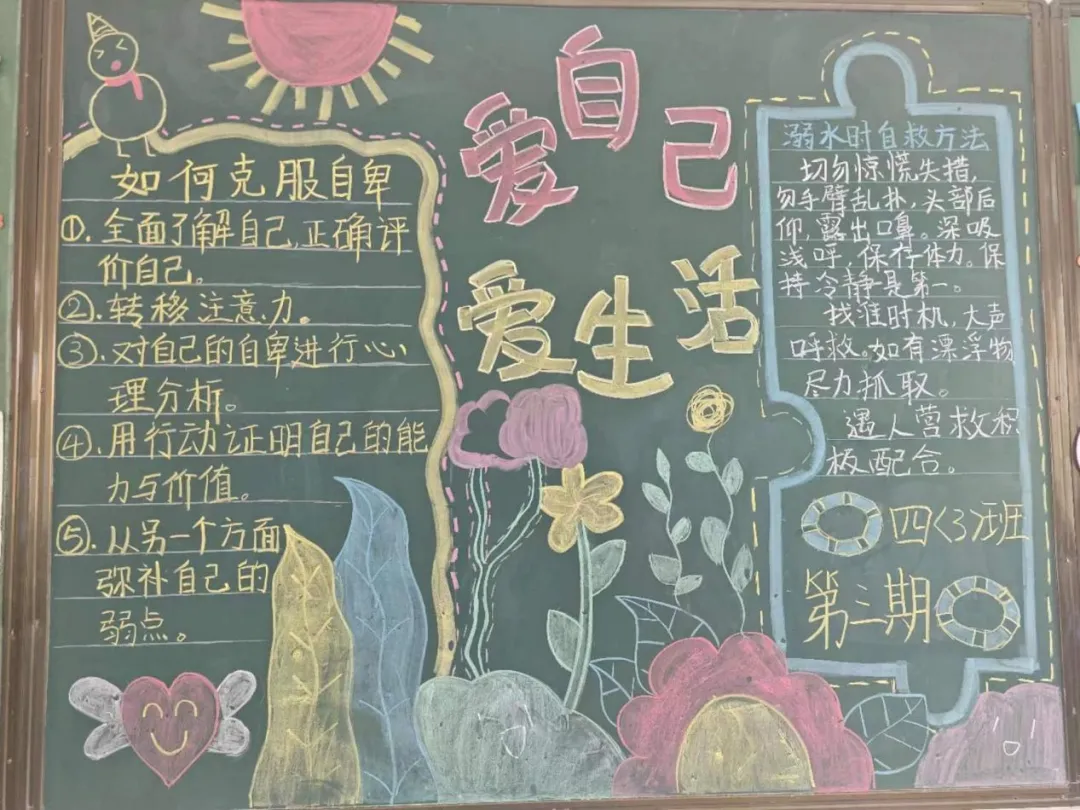 爱自己
爱生活
如何克服自卑
①.全面了解自己,正确评
价自己。
②.转移注意力。
③.对自己的自卑进行心
理分析。
④.用行动证明自己的能
力与价值。
⑤.从另一个方面
弥补自己的
弱点。
溺水时自救方法
切勿惊慌失措,
勿手臂乱扑,头部后
仰,露出口鼻。深吸
浅呼,保存体力。保
持冷静是第一。
找准时机,大声
呼救。如有漂浮物
尽力抓取。
遇人营救积
极配合。
四(3)班
第三期